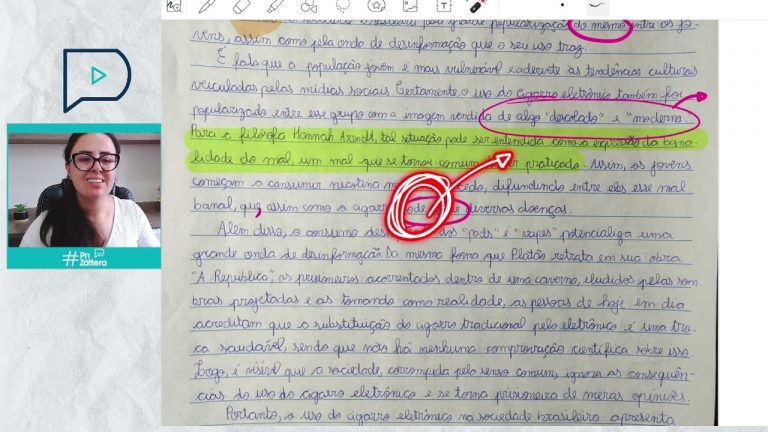 popularização do mesmo entre os jo-
vens, assim como pela onda de desinformação que o seu uso traz.
É fato que a população jovem é mais vulnerável e aderente às tendências culturais
veiculadas pelas mídias sociais. Certamente, o uso do cigarro eletrônico também foi
popularizado entre esse grupo com a imagem vendida de algo "descolado" e "moderno
Para a filósofa Hannah Arendt, tal situação pode ser entendida como a expressão da bana-
lidade do mal, um mal que se tornou comum praticado. Assim, os jovens
começam a consumir nicotina cedo, difundindo entre eles esse mal
banal, que, assim como o cigarro diversas doenças.
Além disso, o consumo dos "pods" e "vapes" potencializa uma
grande onda de desinformação. Da mesma forma que Platão retrata em sua obra
"A República", os prisioneiros acorrentados dentro de uma caverna, iludidos pelas som
bras projetadas e as tomando como realidade, as pessoas de hoje em dia
acreditam que a substituição do cigarro tradicional pelo eletrônico é uma tro
ca saudável, sendo que não há nenhuma comprovação científica sobre isso
Logo, é visível que a sociedade, corrompida pelo senso comum, ignora as consequên-
cias do uso do cigarro eletrônico e se torna prisioneira de meras opiniões.
Portanto, o uso do cigarro eletrônico na sociedade brasileira apresenta
#Pri
Zattera